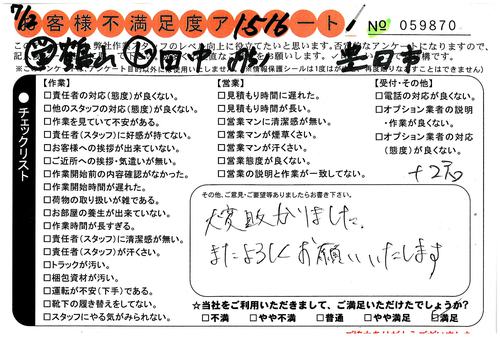 お客様不満足度アンケート!
7/13
1516
№ 059870
弊社作業スタッフのレベル向上に役立てたいと思います。否定的なアンケートになりますので、
鶴山 田中 様 半日市
●チェックリスト
【作業】
□責任者の対応(態度)が良くない。
□他のスタッフの対応(態度)が良くない。
□作業を見ていて不安がある。
□責任者(スタッフ)に好感が持てない。
□お客様への挨拶が出来ていない。
□ご近所への挨拶・気遣いが無い。
□作業開始前の内容確認がなかった。
□作業開始時間が遅れた。
□荷物の取り扱いが雑である。
□お部屋の養生が出来ていない。
□作業時間が長すぎる。
□責任者(スタッフ)に清潔感が無い。
□責任者(スタッフ)が汗くさい。
□トラックが汚い。
□梱包資材が汚い。
□運転が不安(下手)である。
□靴下の履き替えをしてない。
□スタッフにやる気がみられない。
【営業】
□見積もり時間に遅れた。
□見積もり時間が長い。
□営業マンに清潔感が無い。
□営業マンが煙草くさい。
□営業マンが汗くさい。
□営業態度が良くない。
□営業の説明と作業が一致してない。
【受付・その他】
□電話の対応が良くない。
□オプション業者の説明
・作業が良くない。
□オプション業者の対応
(態度)が良くない。
その他、ご意見・ご要望等ありましたらお書き下さい。
大変助かりました。
またよろしくお願いいたします
☆当社をご利用いただきまして、ご満足いただけたでしょうか?
□不満 □やや不満 □普通 □やや満足 ☑満足